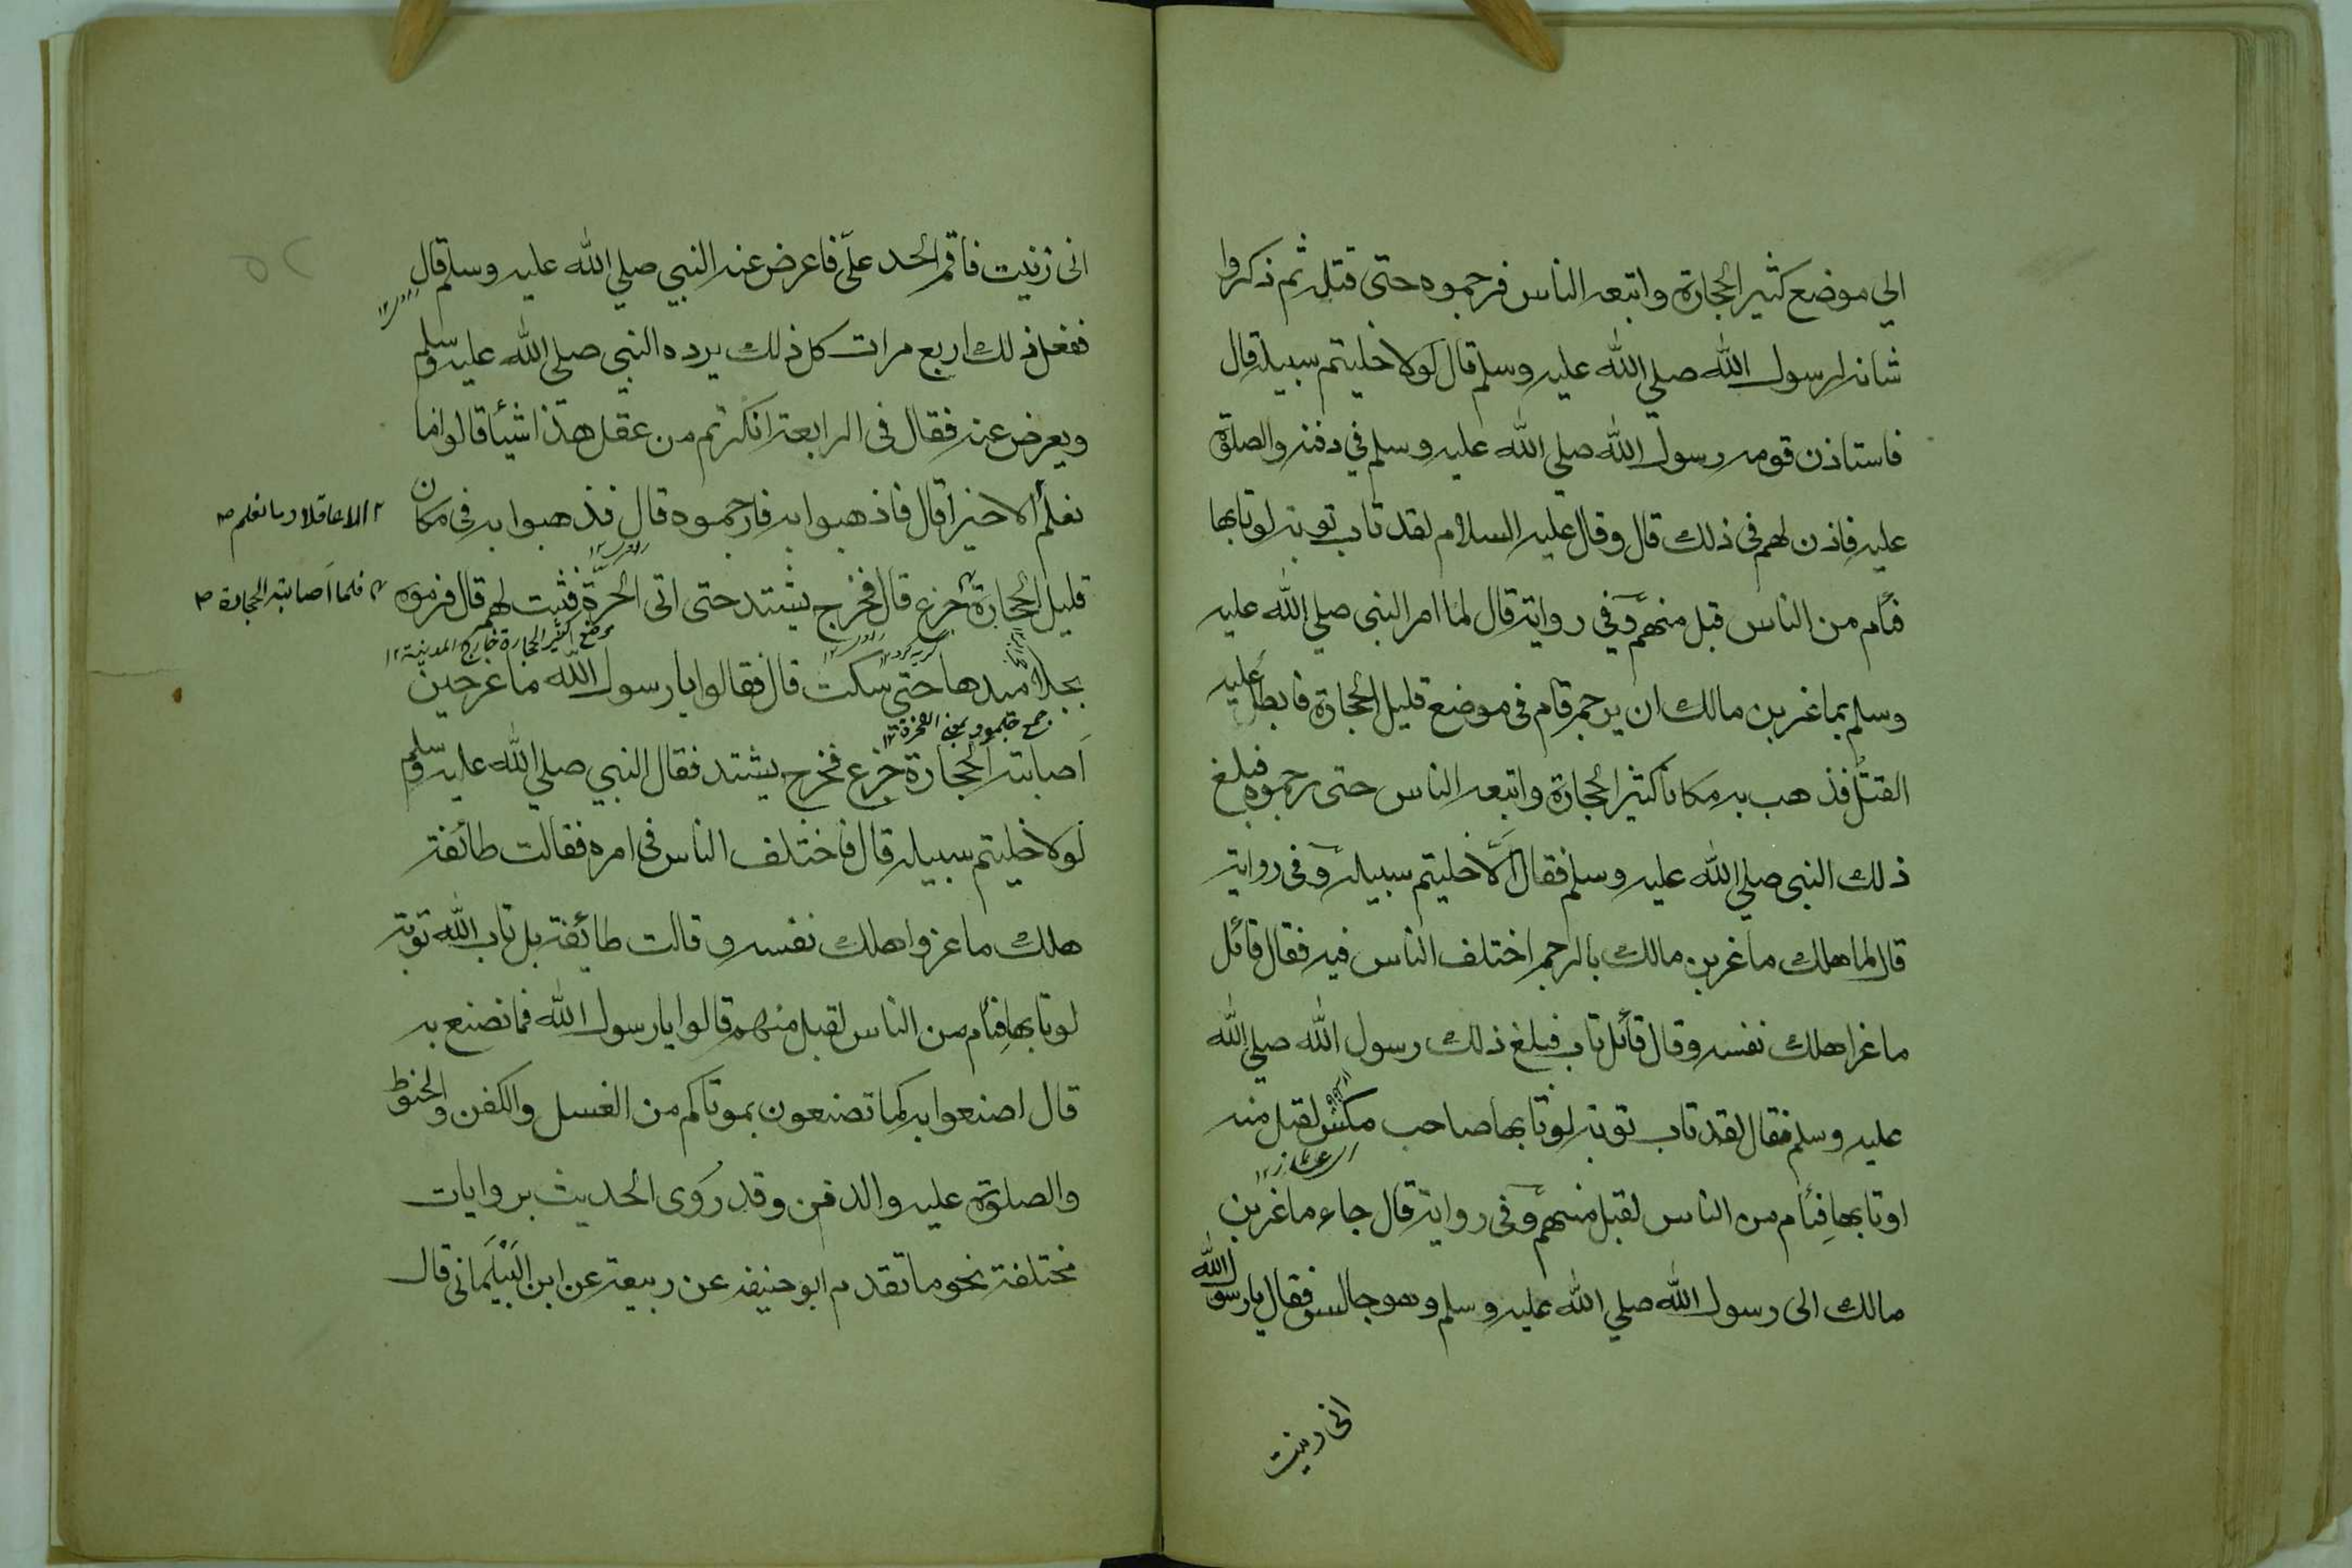 الي موضع كثير الحجارة واتبعه الناس فرجموه حتى قتل ثم ذكروا
شانه لرسول الله صلي الله عليه وسلم قال لولا خليتم سبيله قال
فاستاذن قومه رسول الله صلي الله عليه وسلم في دفنه والصلوة
عليه فاذن لهم فى ذلك قال وقال عليه السلام لقد تاب توبة لو تابها
فئام من الناس قبل منهم وفي رواية قال لما امر النبي صلي الله عليه
وسلم بماعز بن مالك ان يرجم قام فى موضع قليل الحجارة فابطأ عليه
القتل فذهب به مكانا كثير الحجارة واتبعه الناس حتى رجموه فبلغ
ذلك النبي صلي الله عليه وسلم فقال الّا خليتم سبيله وفى رواية
قال لما هلك ماعز بن مالك بالرجم اختلف الناس فيه فقال قائل
ماعز اهلك نفسه وقال قائل تاب فبلغ ذلك رسول الله صلي الله
عليه وسلم فقال لقد تاب توبة لو تابها صاحب مكس لقبل منه
او تابها فئام من الناس لقبل منهم وفى رواية قال جاء ماعز بن
مالك الى رسول الله صلي الله عليه وسلم وهو جالس فقال يا رسول الله
انى زنيت
انى زنيت فاقم الحد علىّ فاعرض عنه النبي صلي الله عليه وسلم قال
ففعل ذلك اربع مرات كل ذلك يرده النبي صلي الله عليه وسلم
ويعرض عنه فقال فى الرابعة انكرتم من عقل هذا شيأ قالوا ما
نعلم الا خيرا قال فاذهبوا به فارجموه قال فذهبوا به فى مكان
الا عاقلا وما نعلم
قليل الحجارة جزع قال فخرج يشتد حتى اتى الحرّة فثبت لهم قال فرموه
فلما اصابته الحجارة
موضع كثير الحجارة خارج المدينة ١٢
بجلاميدها حتى سكت قال فقالوا يا رسول الله ماعز حين
جمع جلمود بمعنى الصخرة ١٢
اصابته الحجارة جزع فخرج يشتد فقال النبي صلي الله عليه وسلم
لولا خليتم سبيله قال فاختلف الناس فى امره فقالت طائفة
هلك ماعز واهلك نفسه وقالت طائفة بل تاب الله توبة
لو تابها فئام من الناس لقبل منهم قالوا يا رسول الله فما نصنع به
قال اصنعوا به كما تصنعون بموتاكم من الغسل والكفن والحنوط
والصلوة عليه والدفن وقد روى الحديث بروايات
مختلفة نحو ما تقدم ابو حنيفه عن ربيعة عن ابن البيلمانى قال